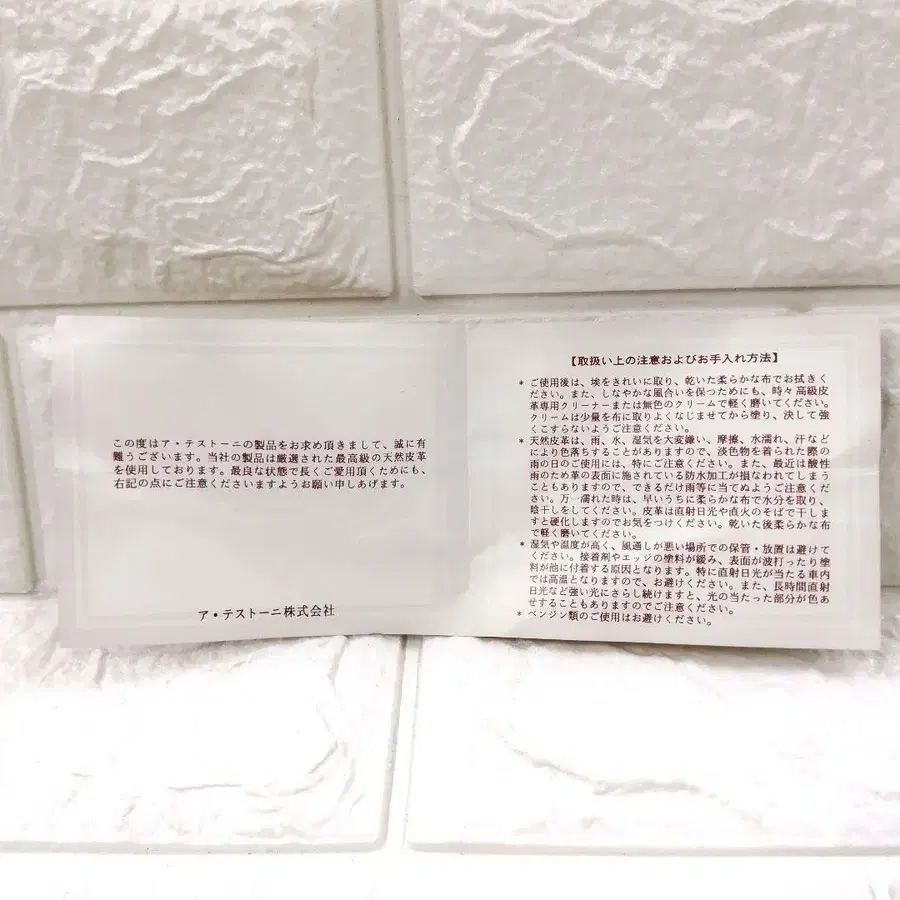 この度はア・テストーニの製品をお求め頂きまして、誠に有
難うございます。当社の製品は厳選された最高級の天然皮革
を使用しております。最良な状態で長くご愛用頂くためにも、
右記の点にご注意くださいますようお願い申しあげます。
ア・テストーニ株式会社
【取扱い上の注意およびお手入れ方法】
* ご使用後は、埃をきれいに取り、乾いた柔らかな布でお拭きく
ださい。また、しなやかな風合いを保つためにも、時々高級皮
革専用クリーナーまたは無色のクリームで軽く磨いてください。
クリームは少量を布に取りよくなじませてから塗り、決して強
くこすらないようご注意ください。
* 天然皮革は、雨、水、湿気を大変嫌い、摩擦、水濡れ、汗など
により色落ちすることがありますので、淡色物を着られた際の
雨の日のご使用には、特にご注意ください。また、最近は酸性
雨のため革の表面に施されている防水加工が損なわれてしまう
こともありますので、できるだけ雨等に当てぬようご注意くだ
さい。万一濡れた時は、早いうちに柔らかな布で水分を取り、
陰干しをしてください。皮革は直射日光や直火のそばで干しま
すと硬化しますのでお気をつけください。乾いた後柔らかな布
で軽く磨いてください。
* 湿気や温度が高く、風通しが悪い場所での保管・放置は避けて
ください。接着剤やエッジの塗料が緩み、表面が波打ったり塗
料が他に付着する原因となります。特に直射日光が当たる車内
では高温となりますので、お避けください。また、長時間直射
日光など強い光にさらし続けますと、光の当たった部分が色あ
せすることもありますのでご注意ください。
* ベンジン類のご使用はお避けください。